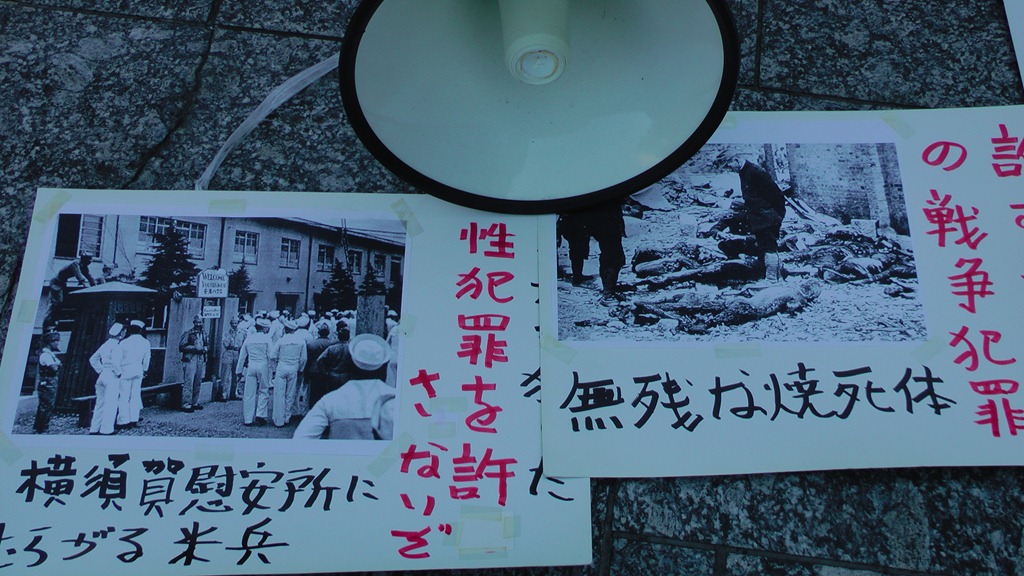 WELCOME
性犯罪を許
さないぞ
横須賀慰安所に
むらがる米兵
の戦争犯罪
許す
無残な焼死体
た